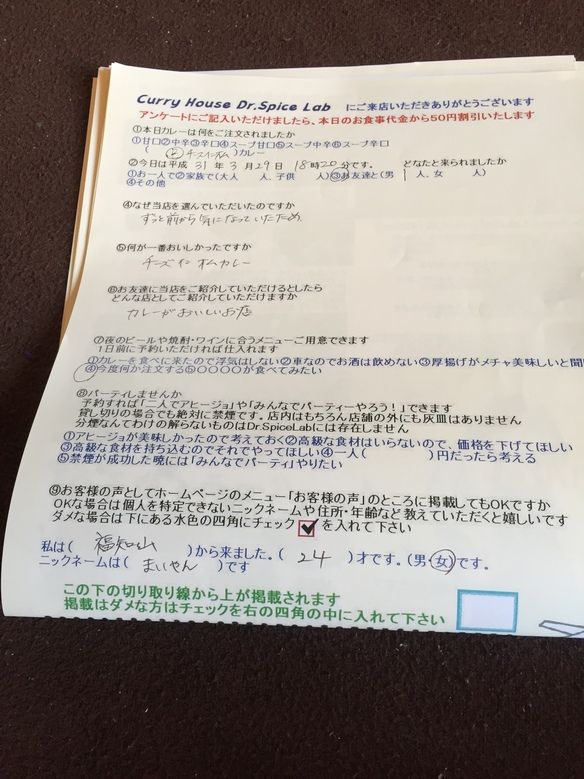 Curry House Dr.Spice Lab にご来店いただきありがとうございます
アンケートにご記入いただけましたら、本日のお食事代金から50円割引いたします
①本日カレーは何をご注文されましたか
①甘口②中辛③辛口④スープ甘口⑤スープ中辛⑥スープ辛口
( )カレー
②今日は平成 31 年 3 月 29 日 18時20分です。 どなたと来られましたか
①お一人で②家族で(大人 人、子供 人)③お友達と(男 1 人、女 人)
④その他
④なぜ当店を選んでいただいたのですか
ずっと前から気になっていたため
⑤何が一番おいしかったですか
チーズinオムカレー
⑥お友達に当店をご紹介していただけるとしたら
どんな店としてご紹介していただけますか
カレーがおいしいお店
⑦夜のビールや焼酎・ワインに合うメニューご用意できます
1日前に予約いただければ仕入れます
①カレーを食べに来たので浮気はしない②車なのでお酒は飲めない③厚揚げがメチャ美味しいと聞
④今度何か注文する⑤〇〇〇〇が食べてみたい
⑧パーティしませんか
予約すれば「二人でアヒージョ」や「みんなでパーティーやろう!」できます
貸し切りの場合でも絶対に禁煙です。店内はもちろん店舗の外にも灰皿はありません
分煙なんてわけの解らないものはDr.SpiceLabには存在しません
①アヒージョが美味しかったので考えておく②高級な食材はいらないので、価格を下げてほしい
③高級な食材を持ち込むのでそれでやってほしい④一人( )円だったら考える
⑤禁煙が成功した暁には「みんなでパーティ」やりたい
⑨お客様の声としてホームページのメニュー「お客様の声」のところに掲載してもOKですか
OKな場合は個人を特定できないニックネームや住所・年齢など教えていただくと嬉しいです
ダメな場合は下にある水色の四角にチェック を入れて下さい
私は( 福知山 )から来ました。( 24 )才です。(男・女)です。
ニックネームは( まいやん )です
この下の切り取り線から上が掲載されます
掲載はダメな方はチェックを右の四角の中に入れて下さい